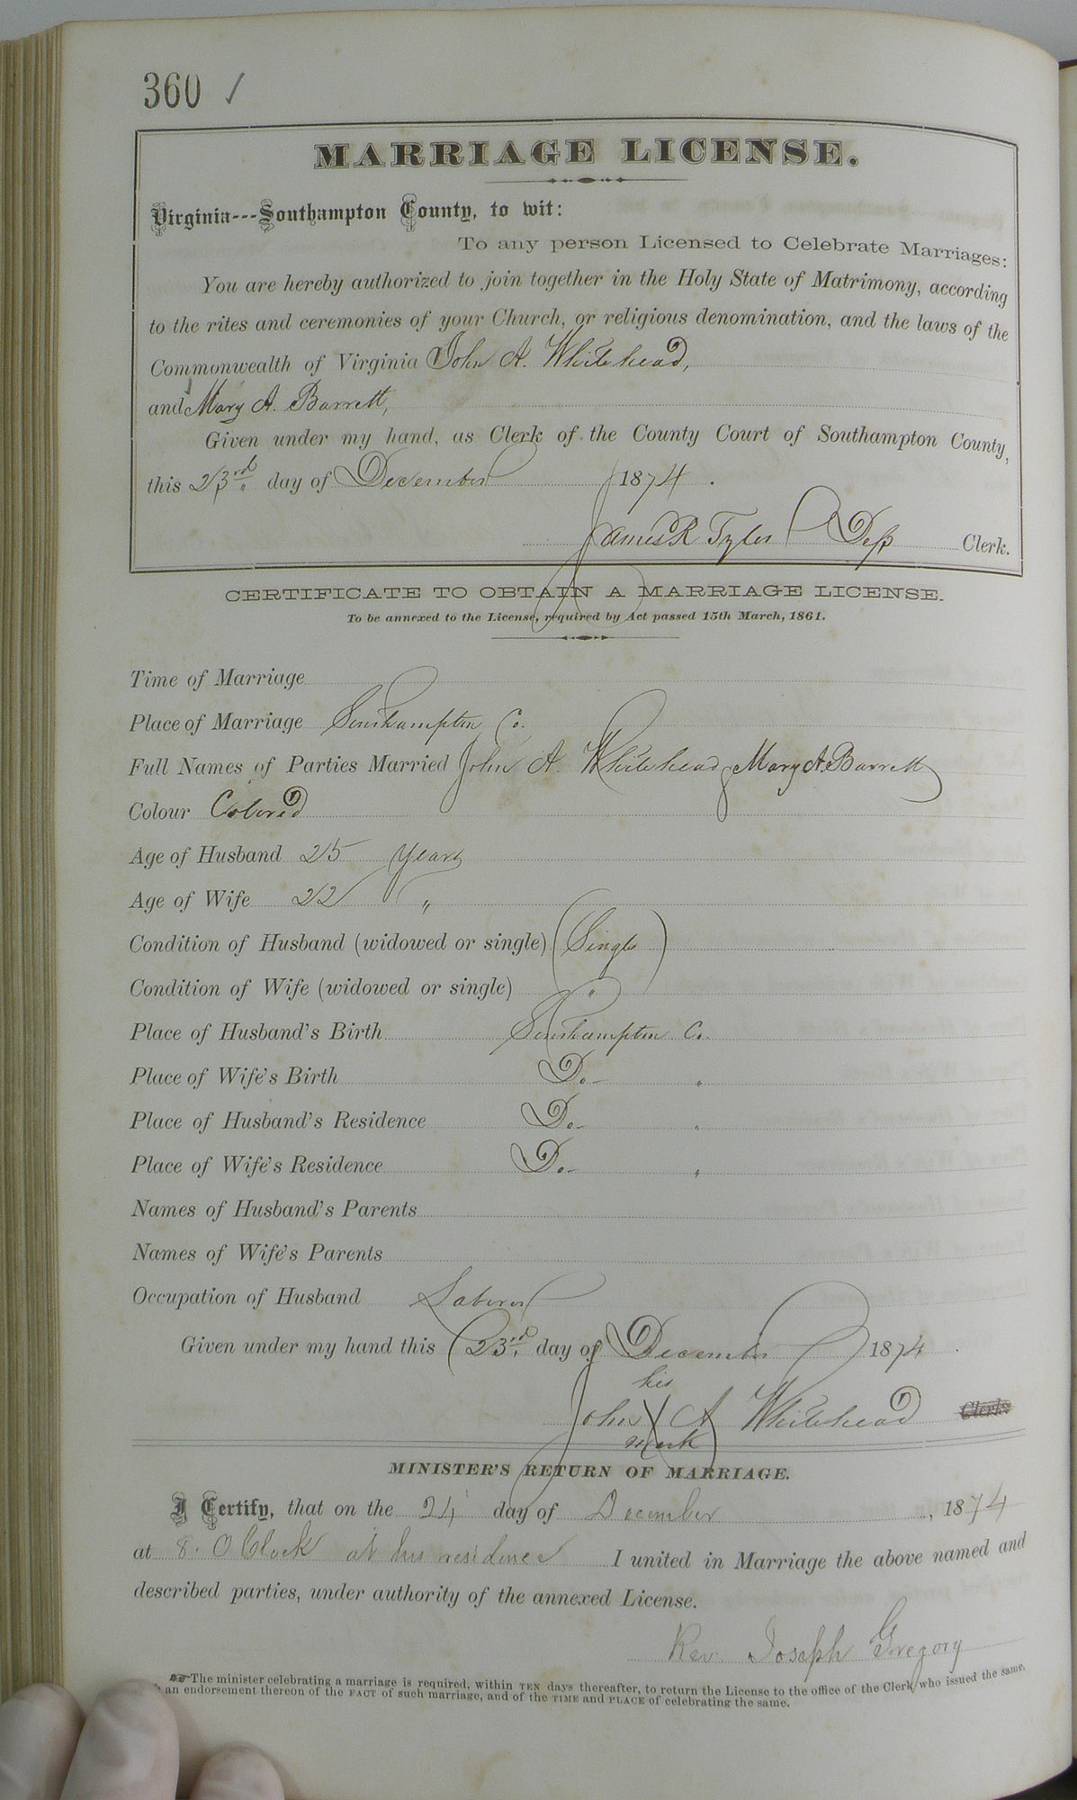 360 ✓
MARRIAGE LICENSE.
Virginia---Southampton County, to wit:
To any person Licensed to Celebrate Marriages:
You are hereby authorized to join together in the Holy State of Matrimony, according
to the rites and ceremonies of your Church, or religious denomination, and the laws of the
Commonwealth of Virginia John A. Whitehead,
and Mary A. Barrett,
Given under my hand, as Clerk of the County Court of Southampton County,
this 23rd day of December 1874.
James R Tyler Dep Clerk.
CERTIFICATE TO OBTAIN A MARRIAGE LICENSE.
To be annexed to the License, required by Act passed 15th March, 1861.
Time of Marriage
Place of Marriage Southampton Co.
Full Names of Parties Married John A. Whitehead & Mary A. Barrett
Colour Colored
Age of Husband 25 Years
Age of Wife 22 "
Condition of Husband (widowed or single) Single
Condition of Wife (widowed or single) "
Place of Husband's Birth Southampton Co.
Place of Wife's Birth Do- "
Place of Husband's Residence Do- "
Place of Wife's Residence Do- "
Names of Husband's Parents
Names of Wife's Parents
Occupation of Husband Laborer
Given under my hand this 23rd day of December 1874.
his
John X A Whitehead Clerk.
mark
MINISTER'S RETURN OF MARRIAGE.
I Certify, that on the 24 day of December, 1874
at 8. O Clock at his residence I united in Marriage the above named and
described parties, under authority of the annexed License.
Rev. Joseph Gregory
☞ The minister celebrating a marriage is required, within TEN days thereafter, to return the License to the office of the Clerk who issued the same,
an endorsement thereon of the FACT of such marriage, and of the TIME and PLACE of celebrating the same.